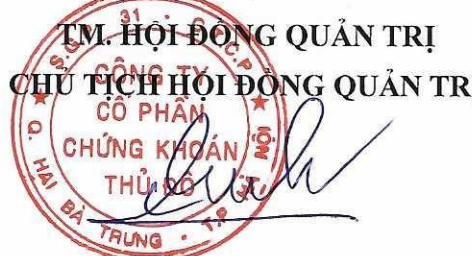 TM. HỘI ĐỒNG QUẢN TRỊ
CHỦ TỊCH HỘI ĐỒNG QUẢN TR
CÔNG TY
CỔ PHẦN
CHỨNG KHOÁN
THỦ ĐÔ
Q. HAI BÀ TRƯNG - T.P